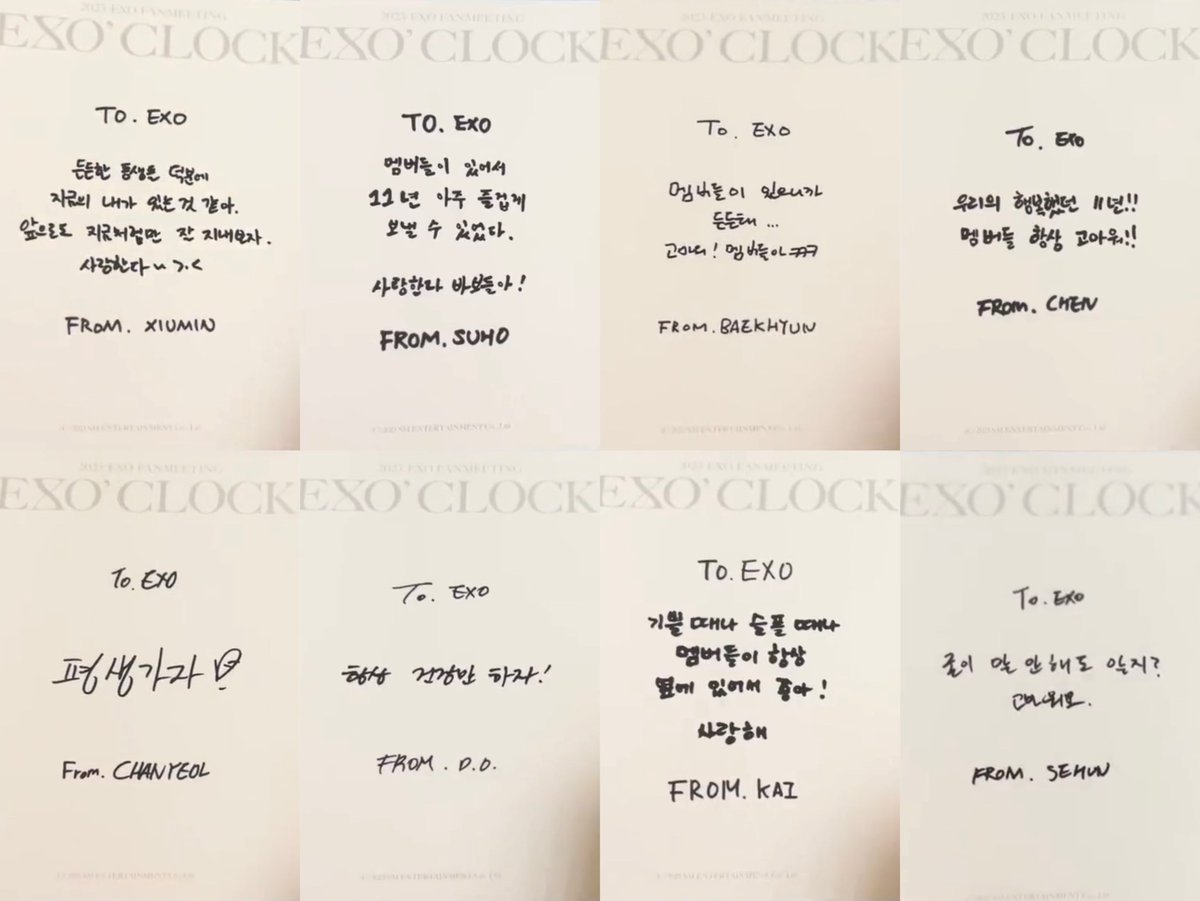 2023 EXO FANMEETING
EXO' CLOCK
TO. EXO
든든한 동생들 덕분에
지금의 내가 있는 것 같아.
앞으로도 지금처럼만 잘 지내보자.
사랑한다~ >.<
FROM. XIUMIN
(C) 2023 SM ENTERTAINMENT Co., Ltd
2023 EXO FANMEETING
EXO' CLOCK
TO. EXO
멤버들이 있어서
11년 아주 즐겁게
보낼 수 있었다.
사랑한다 바보들아!
FROM. SUHO
(C) 2023 SM ENTERTAINMENT Co., Ltd
2023 EXO FANMEETING
EXO' CLOCK
To. EXO
멤버들이 있으니까
든든해...
고마워! 멤버들아 ㅋㅋㅋ
FROM. BAEKHYUN
(C) 2023 SM ENTERTAINMENT Co., Ltd
2023 EXO FANMEETING
EXO' CLOCK
To. EXO
우리의 행복했던 11년!!
멤버들 항상 고마워!!
FROM. CHEN
(C) 2023 SM ENTERTAINMENT Co., Ltd
2023 EXO FANMEETING
EXO' CLOCK
To. EXO
평생가자
From. CHANYEOL
(C) 2023 SM ENTERTAINMENT Co., Ltd
2023 EXO FANMEETING
EXO' CLOCK
To. EXO
항상 건강만 하자!
FROM. D.O.
(C) 2023 SM ENTERTAINMENT Co., Ltd
2023 EXO FANMEETING
EXO' CLOCK
TO. EXO
기쁠 때나 슬플 때나
멤버들이 항상
옆에 있어서 좋아!
사랑해
FROM. KAI
(C) 2023 SM ENTERTAINMENT Co., Ltd
2023 EXO FANMEETING
EXO' CLOCK
To. EXO
굳이 말 안 해도 알지?
FROM. SEHUN